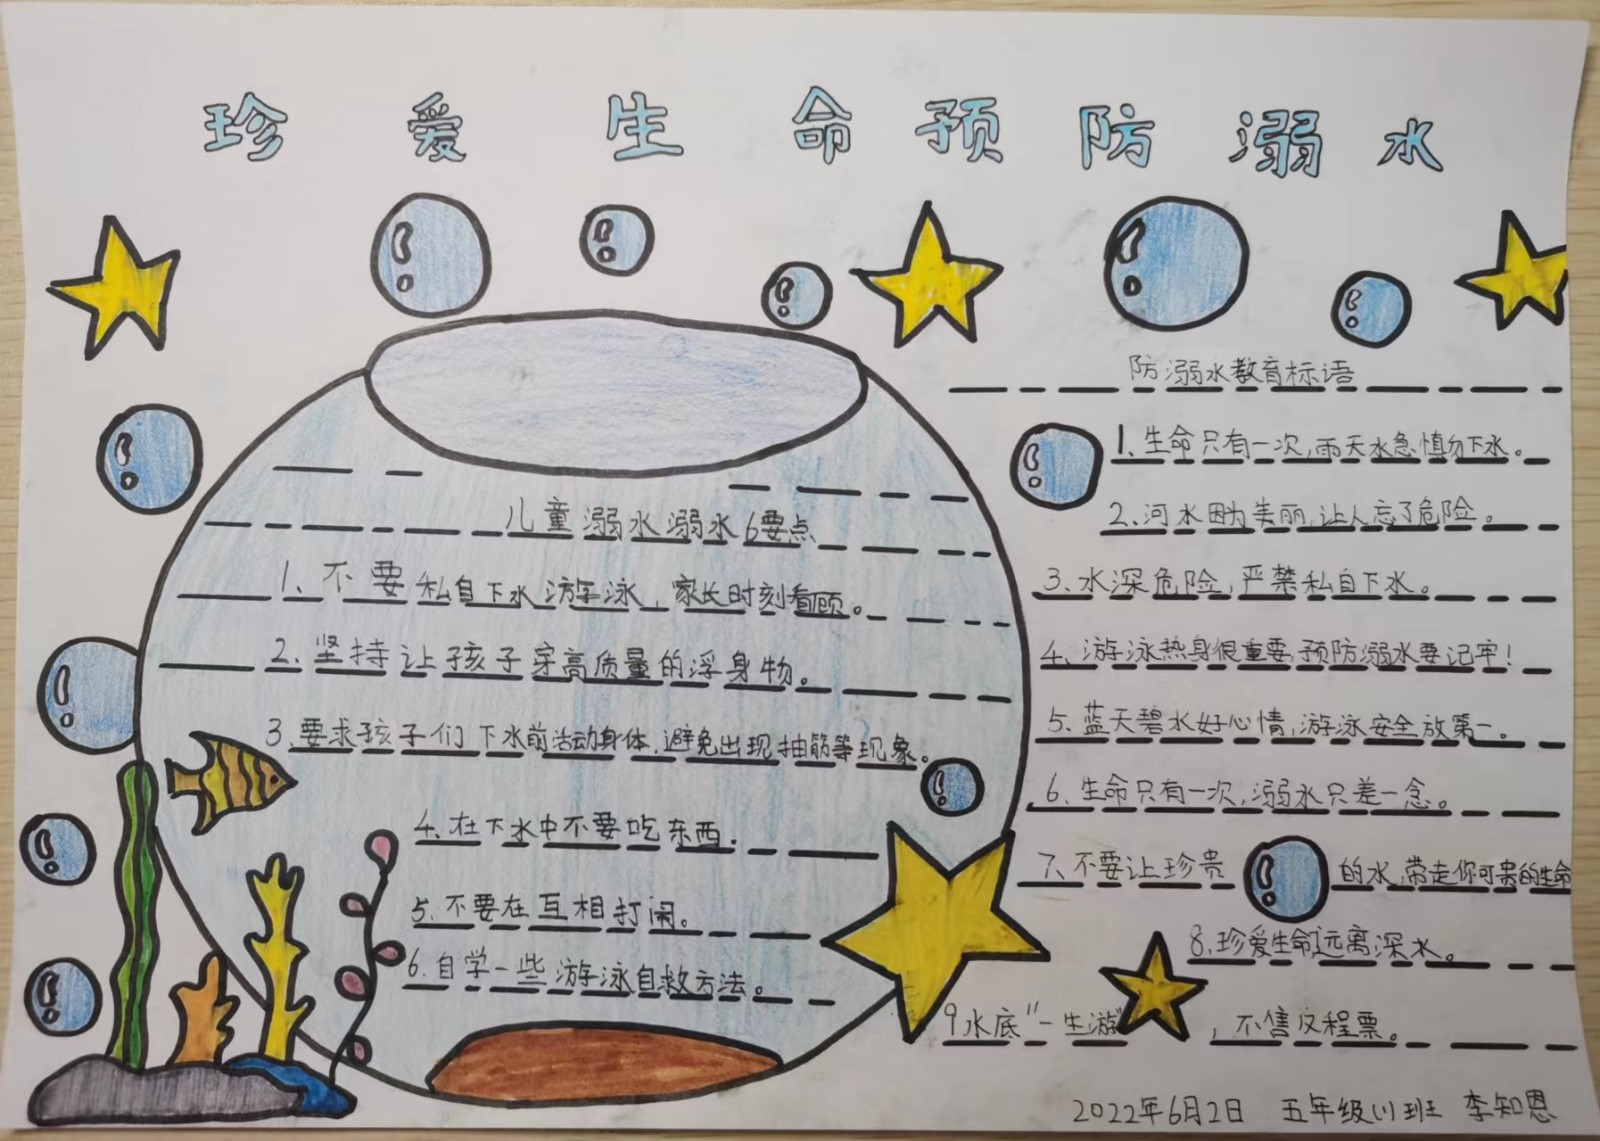 珍爱生命预防溺水
儿童溺水溺水6要点
1、不要私自下水游泳，家长时刻看顾。
2、坚持让孩子穿高质量的浮身物。
3、要求孩子们下水前活动身体，避免出现抽筋等现象。
4、在下水中不要吃东西.
5、不要在互相打闹。
6、自学一些游泳自救方法。
防溺水教育标语
1、生命只有一次，雨天水急慎勿下水。
2、河水因为美丽，让人忘了危险。
3、水深危险，严禁私自下水。
4、游泳热身很重要，预防溺水要记牢！
5、蓝天碧水好心情，游泳安全放第一。
6、生命只有一次，溺水只差一念。
7、不要让珍贵的水，带走你可贵的生命
8、珍爱生命远离深水。
9水底"一生游"，不售返程票。
2022年6月2日 五年级(1)班 李知恩